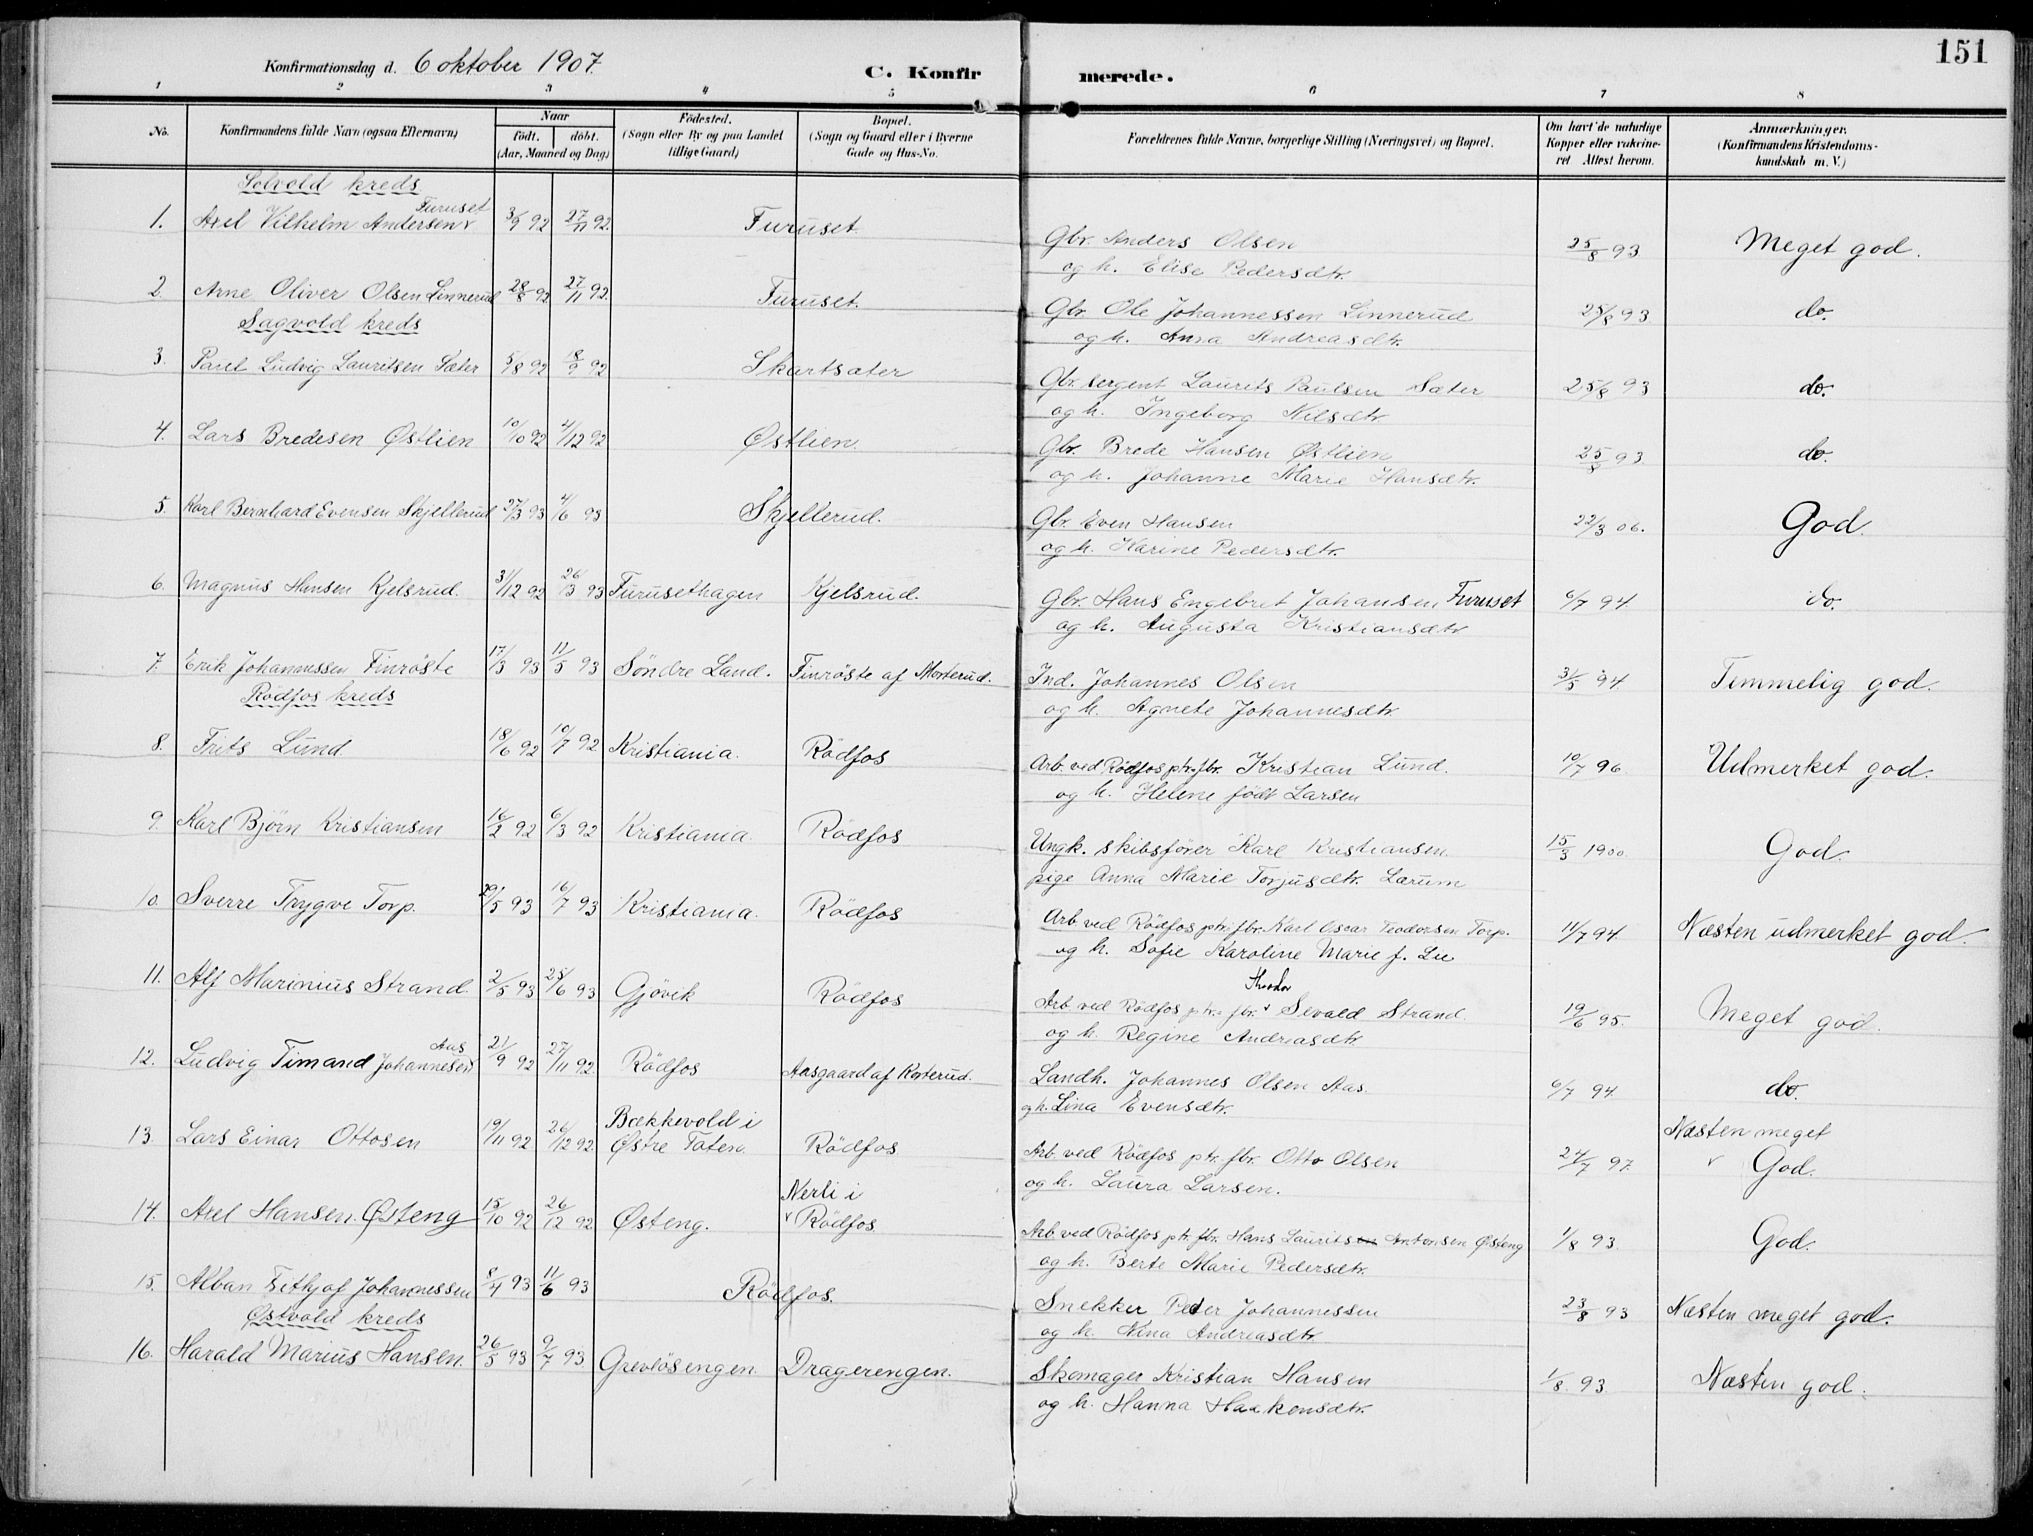 Konfirmationsdag d. 6 oktober 1907.
C. Konfirmerede.
151
1 2 3 4 5 6 7 8
No.
Konfirmandens fulde Navn (ogsaa Efternavn)
Naar
födt. döbt.
(Aar, Maaned og Dag)
Födested.
(Sogn eller By og paa Landet
tillige Gaard)
Bopæl.
(Sogn og Gaard eller i Byerne
Gade og Hus-No.
Forældrenes fulde Navne, borgerlige Stilling (Næringsvei) og Bopæl.
Om havt de naturlige
Kopper eller vakcine-
ret Attest herom.
Anmærkninger.
(Konfirmandens Kristendoms-
kundskab m. V.)
Selvold kreds
Furuset
1. Axel Vilhelm Andersen v 3/9 92 27/11 92. Furuset. Gbr. Anders Olsen 25/8 93 Meget god.
og h. Elise Pedersdtr.
2. Arne Oliver Olsen Linnerud 28/8 92 27/11 92. Furuset. Gbr. Ole Johannessen Linnerud 25/8 93 do.
og h. Anna Andreasdtr.
Sagvold kreds
3. Paul Ludvig Lauritsen Sæter 5/8 92 18/9 92 Skartsæter Gbr. sergent Laurits Paulsen Sæter 25/8 93 do.
og h. Ingeborg Nilsdtr.
4. Lars Bredesen Østlien 10/10 92 4/12 92 Østlien. Gbr. Brede Hansen Østlien 25/8 93 do.
og h. Johanne Marie Hansdtr.
5. Karl Bernhard Evensen Skjellerud 27/3 93 4/6 93 Skjellerud. Gbr. Even Hansen 22/3 06. God.
og h. Karine Pedersdtr.
6. Magnus Hansen Kjelsrud. 31/12 92 26/3 93 Furusethagen Kjelsrud. Gbr. Hans Engebret Johansen Furuset 6/7 94. do.
og h. Augusta Kristiansdtr
7. Erik Johannessen Finröste 17/3 93 11/5 93 Söndre Land. Finröste af Morterud. Ind. Johannes Olsen 31/5 94. Temmelig god.
og h. Agnete Johannesdtr.
Rödfos kreds
8. Frits Lund 18/6 92 10/7 92 Kristiania. Rödfos Arb. ved Rödfos ptr. fbr. Kristian Lund. 10/7 96. Udmerket god.
og h. Helene födt Larsen
9. Karl Björn Kristiansen 16/2 92 6/3 92 Kristiania. Rödfos Ungk. skibsförer Karl Kristiansen. 15/3 1900. God.
pige Anna Marie Torjusdtr. Larum
10. Sverre Trygve Torp. 29/5 93 16/7 93 Kristiania. Rödfos Arb. ved Rödfos ptr. fbr. Karl Oscar Teodorsen Torp. 11/7 94. Næsten udmerket god.
og h. Sofie Karoline Marie f. Lie
Theodor
11. Alf Marinius Strand. 2/5 93 25/6 93 Gjövik Rödfos Arb. ved Rödfos ptr. fbr. v Sevald Strand. 19/6 95. Meget god.
og h. Regine Andreasdtr.
Aas
12. Ludvig Timand Johannesen v 21/9 92 27/11 92. Rödfos Aasgaard af Korterud. Landh. Johannes Olsen Aas. 6/7 94. do.
og h. Lina Evensdtr.
Bækkevold i
Næsten meget
13. Lars Einar Ottosen 19/11 92 26/12 92. Østre Toten. Rödfos. Arb. ved Rödfos ptr. fbr. Otto Olsen 24/7 97. v God.
og h. Laura Larsen.
Nerli i
14. Axel Hansen Østeng 15/10 92 26/12 92. Østeng. v Rödfos Arb. ved Rödfos ptr. fbr. Hans Lauritsen Antonsen Østeng 1/8 93. God.
og h. Berte Marie Pedersdtr.
15. Alban Fethjof Johannessen 8/4 93 11/6 93 Rödfos. Snekker Peder Johannessen 23/8 93 Næsten meget god.
og h. Nina Andreasdtr.
Østvold kreds
16. Harald Marius Hansen. 26/5 93 9/7 93. Grevlösengen. Dragerengen. Skomager Kristian Hansen 1/8 93. Næsten god.
og h. Hanna Haakensdtr.